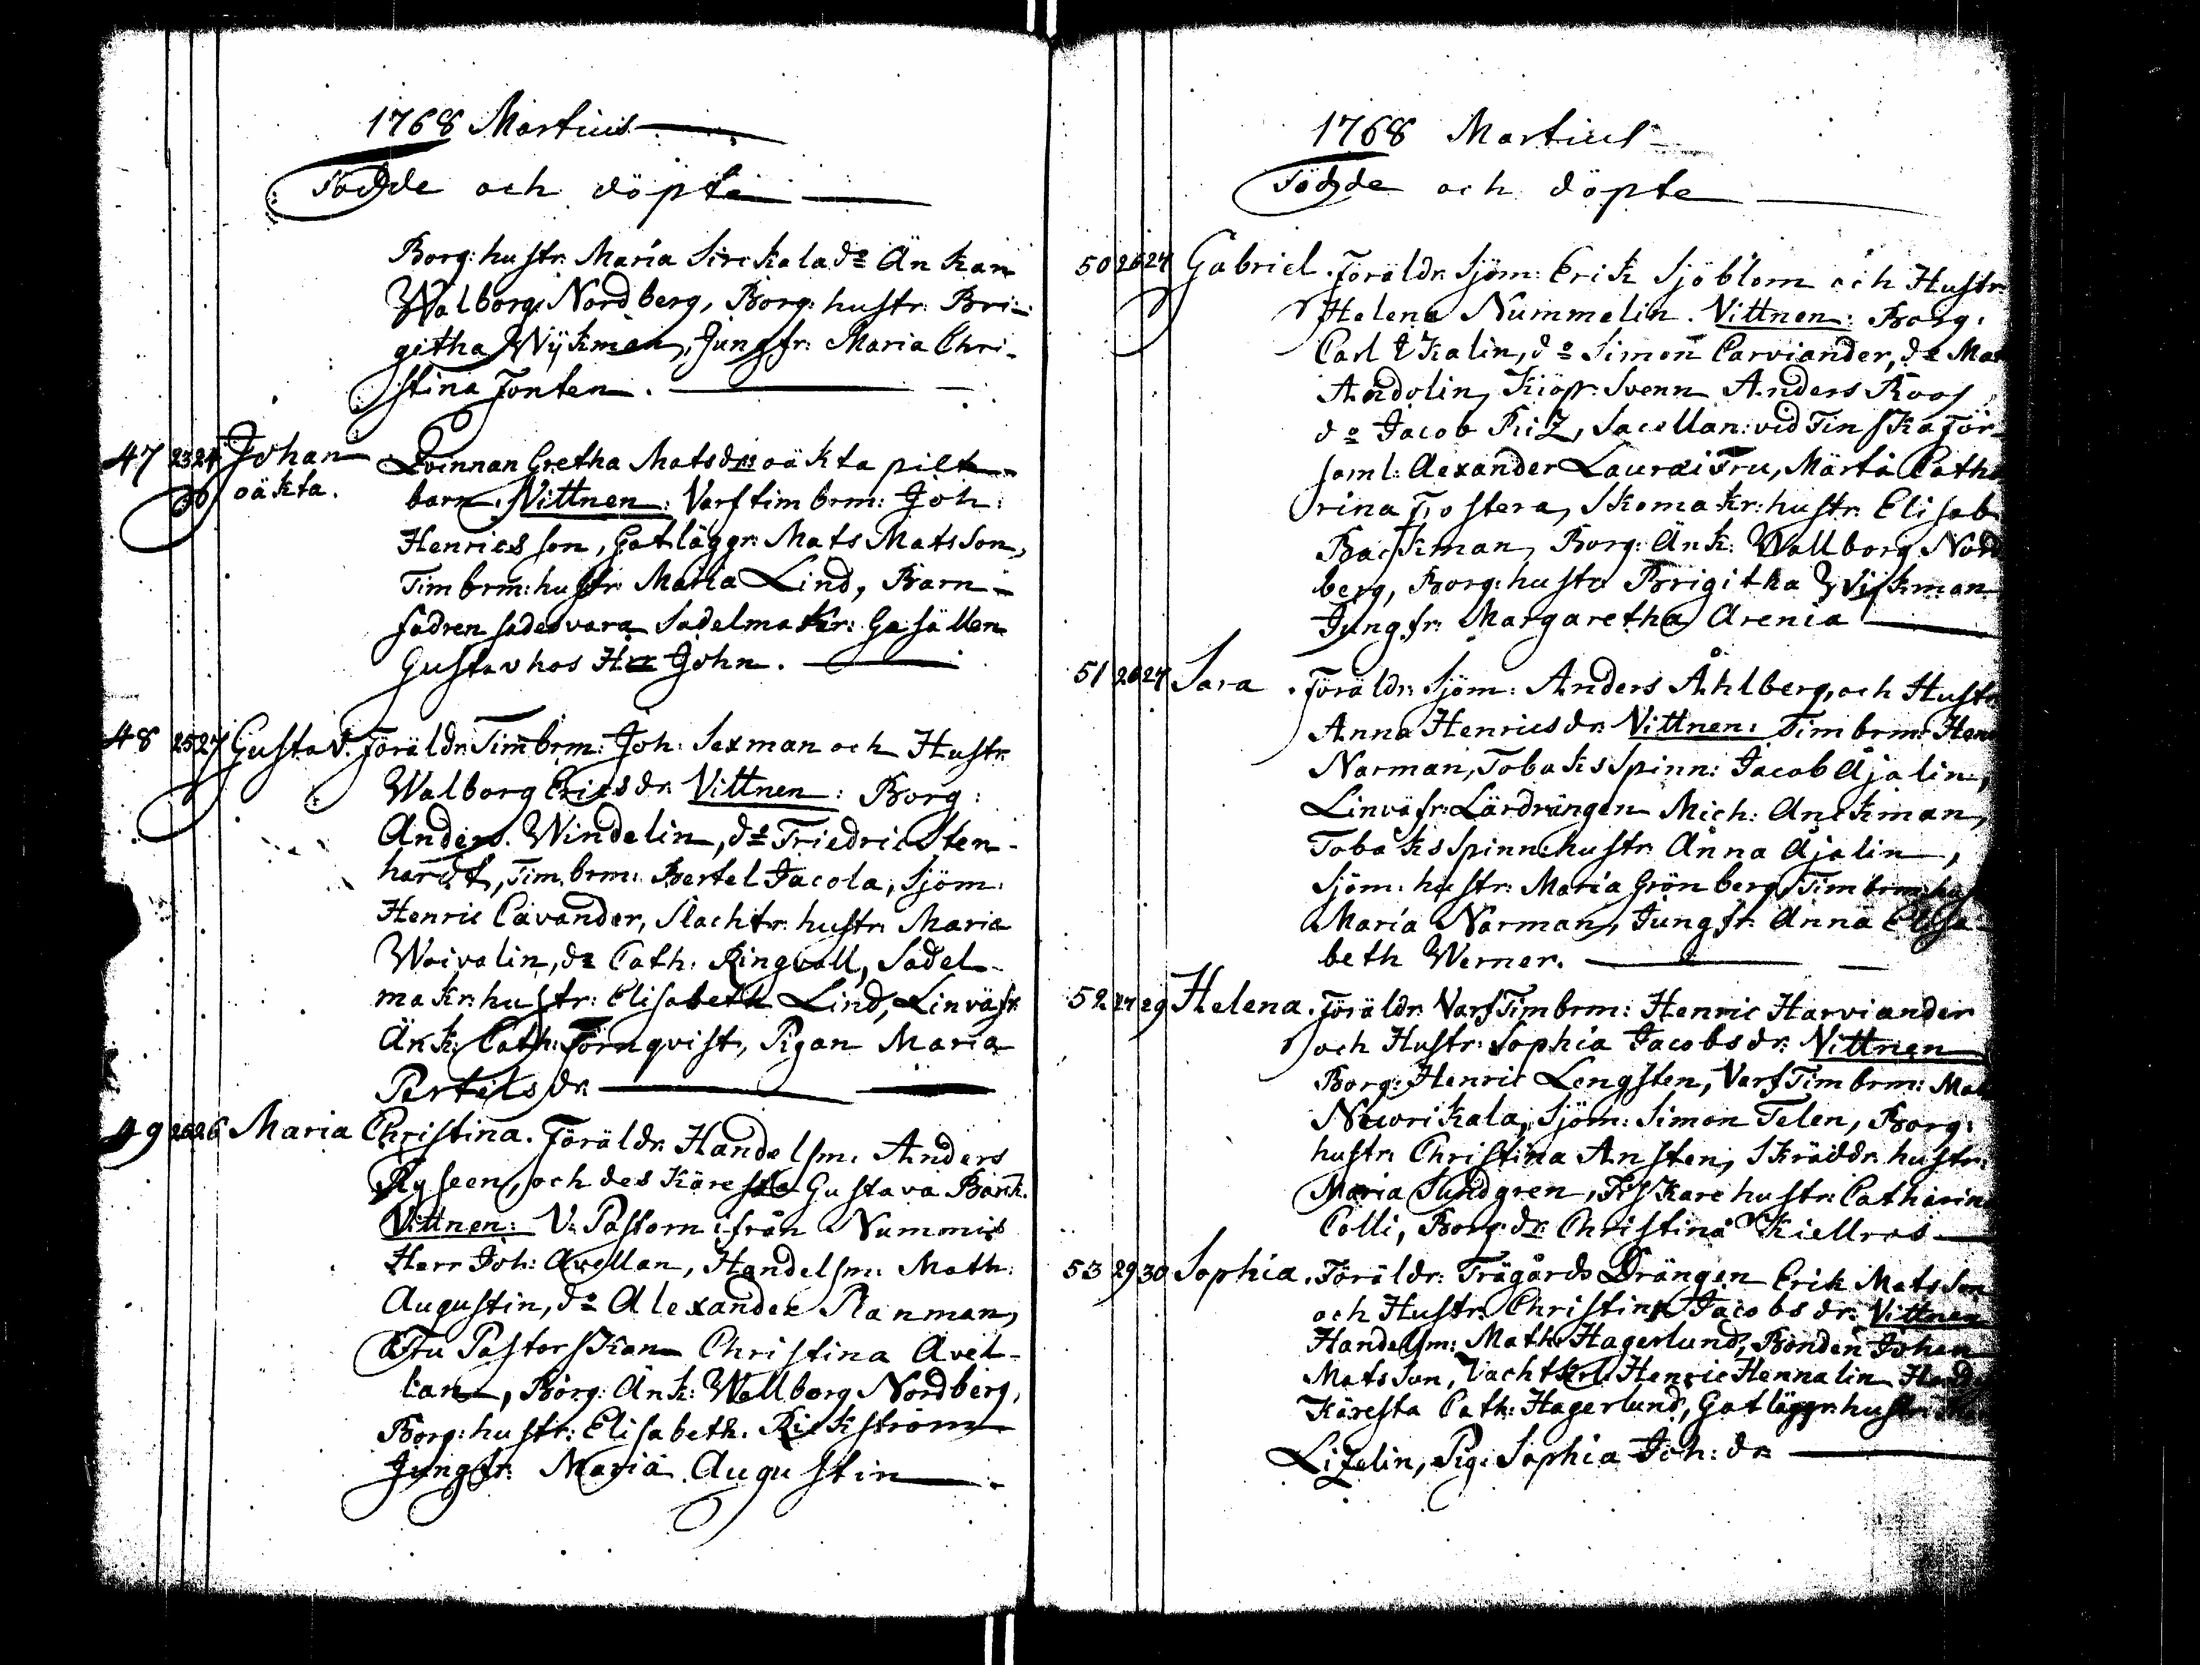 1768 Martius
Födde och döpte
Borg: hustr: Maria Sirckala do Änkan
Walborg Nordberg, Borg: hustr: Bri-
githa Wijkman, Jungfr: Maria Chri-
stina Fonten.
47 23 24 Johan Qvinnan Gretha Matsdr: oäkta pilt
oäkta. barn. Vittnen: Varftimbrm: Joh:
Henricsson, Gatläggr: Mats Matsson,
Timbrm: hustr: Maria Lind, Barn-
fadren sades vara Sadelmakr: Gesällen
Gustav hos Hr John.
48 25 27 Gustav. Föräldr: Timbrm: Joh: Sexman och Hustr:
Walborg Ericsdr: Vittnen: Borg:
Anders Windelin, do Friedric Sten-
hardt, Timbrm: Bertel Jacola, Sjöm:
Henric Cavander, Slachtr: hustr: Maria
Waivalin, do Cath: Ringvall, Sadel-
makr: hustr: Elisabeth Lind, Linväfr:
Änk: Cath: Törnqvist, Pigan Maria
Bertilsdr:
49 26 26 Maria Christina. Föräldr: Handelsm: Anders
Ryseen, och des Käresta Gustava Bänk.
Vittnen: V: Pastorn ifrån Nummis
Herr Joh: Avellan, Handelsm: Math:
Augustin, do Alexander Planman,
Fru Pastorskan Christina Avel-
lan, Borg: Änk: Wallborg Nordberg,
Borg: hustr: Elisabeth Rickström
Jungfr: Maria Augustin
1768 Martius
Födde och döpte
50 26 27 Gabriel. Föräldr: Sjöm: Erik Sjöblom och Hustr:
Helena Nummelin. Vittnen: Borg:
Carl Ekalin, do Simon Carviander, do Mat
Andolin, Kiöp: Svenn Anders Roos
do Jacob Priz, Sacellan: vid Finska För-
saml: Alexander Lauraei Fru, Märta Catha
rina Frostera, Skomakr: hustr: Elisab
Backman, Borg: Änk: Wallborg Nord
berg, Borg: hustr Brigitha Wijkman
Jungfr: Margaretha Arenia
51 26 27 Sara. Föräldr: Sjöm: Anders Åhlberg, och Hustr
Anna Henricsdr: Vittnen: Timbrm: Hen
Narman, Tobaks Spinn: Jacob Ajalin,
Linväfr: Lärdrängen Mich: Anckman,
Tobaks Spinn: hustr: Anna Ajalin,
Sjöm: hustr: Maria Grönberg, Timbrm: hu
Maria Narman, Jungfr: Anna Elisa-
beth Werner.
52 27 29 Helena. Föräldr: Varf Timbrm: Henric Harviander
och Hustr: Sophia Jacobsdr: Vittnen
Borg: Henric Lengsten, Varf Timbrm: Mat
Nuorikala, Sjöm: Simon Telen, Borg:
hustr: Christina Ansten, Skräddr: hustr:
Maria Sundgren, Fiskare hustr: Catharin
Colli, Borg: dr: Christina Kiellros
53 29 30 Sophia. Föräldr: Trägårds Drängen Erik Matsson
och Hustr: Christina Jacobsdr: Vittnen
Handelsm: Math: Hagerlund, Bonden Johan
Matsson, Vachtkrl: Henric Hennalin Hand
Käresta Cath: Hagerlund, Gatläggr: hustr:
Lizelin, Pig: Sophia Joh: dr: